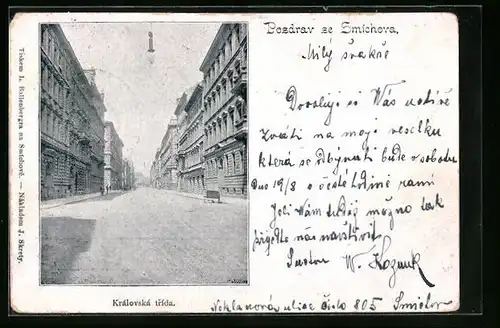 Pozdrav ze Smíchova.
Milý švakře
Dovoluji si Vás uctivě
zváti na moji veselku
která se odbývati bude v sobotu
Dne 19/8 o hodině ranní
Jeli Vám tudy možno tak
přijeďte nás navštívit
W. Koznuk
Neklanova ulice číslo 805 Smíchov
Královská třída.
Tiskem L. Rollenbergra na Smíchově. — Nákladem J. Skrety.